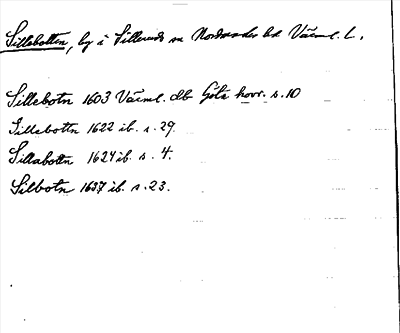 Sillebotten, by i Sillerud sn Nordmarks hd Värml. l.
Sillebotn 1603 Värml. db Göta hovr. s. 10
Sillebottn 1622 ib. s. 29.
Sillabottn 1624 ib. s. 4.
Silbotn 1637 ib. s. 23.